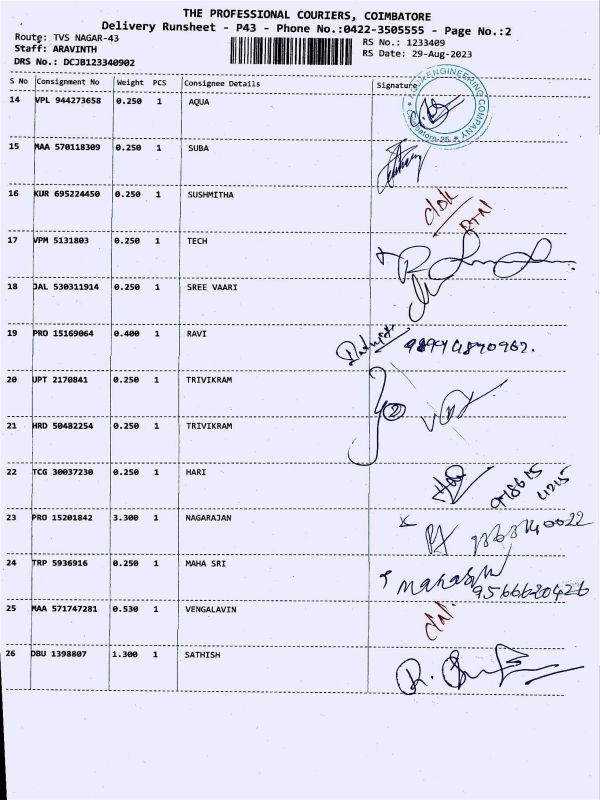 THE PROFESSIONAL COURIERS, COIMBATORE
Delivery Runsheet - P43 - Phone No.:0422-3505555 - Page No.:2
Route: TVS NAGAR-43
RS No.: 1233409
Staff: ARAVINTH
RS Date: 29-Aug-2023
DRS No.: DCJB123340902
S No Consignment No Weight PCS Consignee Details Signature
14 VPL 944273658 0.250 1 AQUA
ENGINEERING COMPANY
15 MAA 570118309 0.250 1 SUBA
16 KUR 695224450 0.250 1 SUSHMITHA
17 VPM 5131803 0.250 1 TECH
18 JAL 530311914 0.250 1 SREE VAARI
19 PRO 15169064 0.400 1 RAVI
20 UPT 2170841 0.250 1 TRIVIKRAM
21 HRD 50482254 0.250 1 TRIVIKRAM
22 TCG 30037230 0.250 1 HARI
23 PRO 15201842 3.300 1 NAGARAJAN
24 TRP 5936916 0.250 1 MAHA SRI
9566620426
25 MAA 571747281 0.530 1 VENGALAVIN
26 DBU 1398807 1.300 1 SATHISH